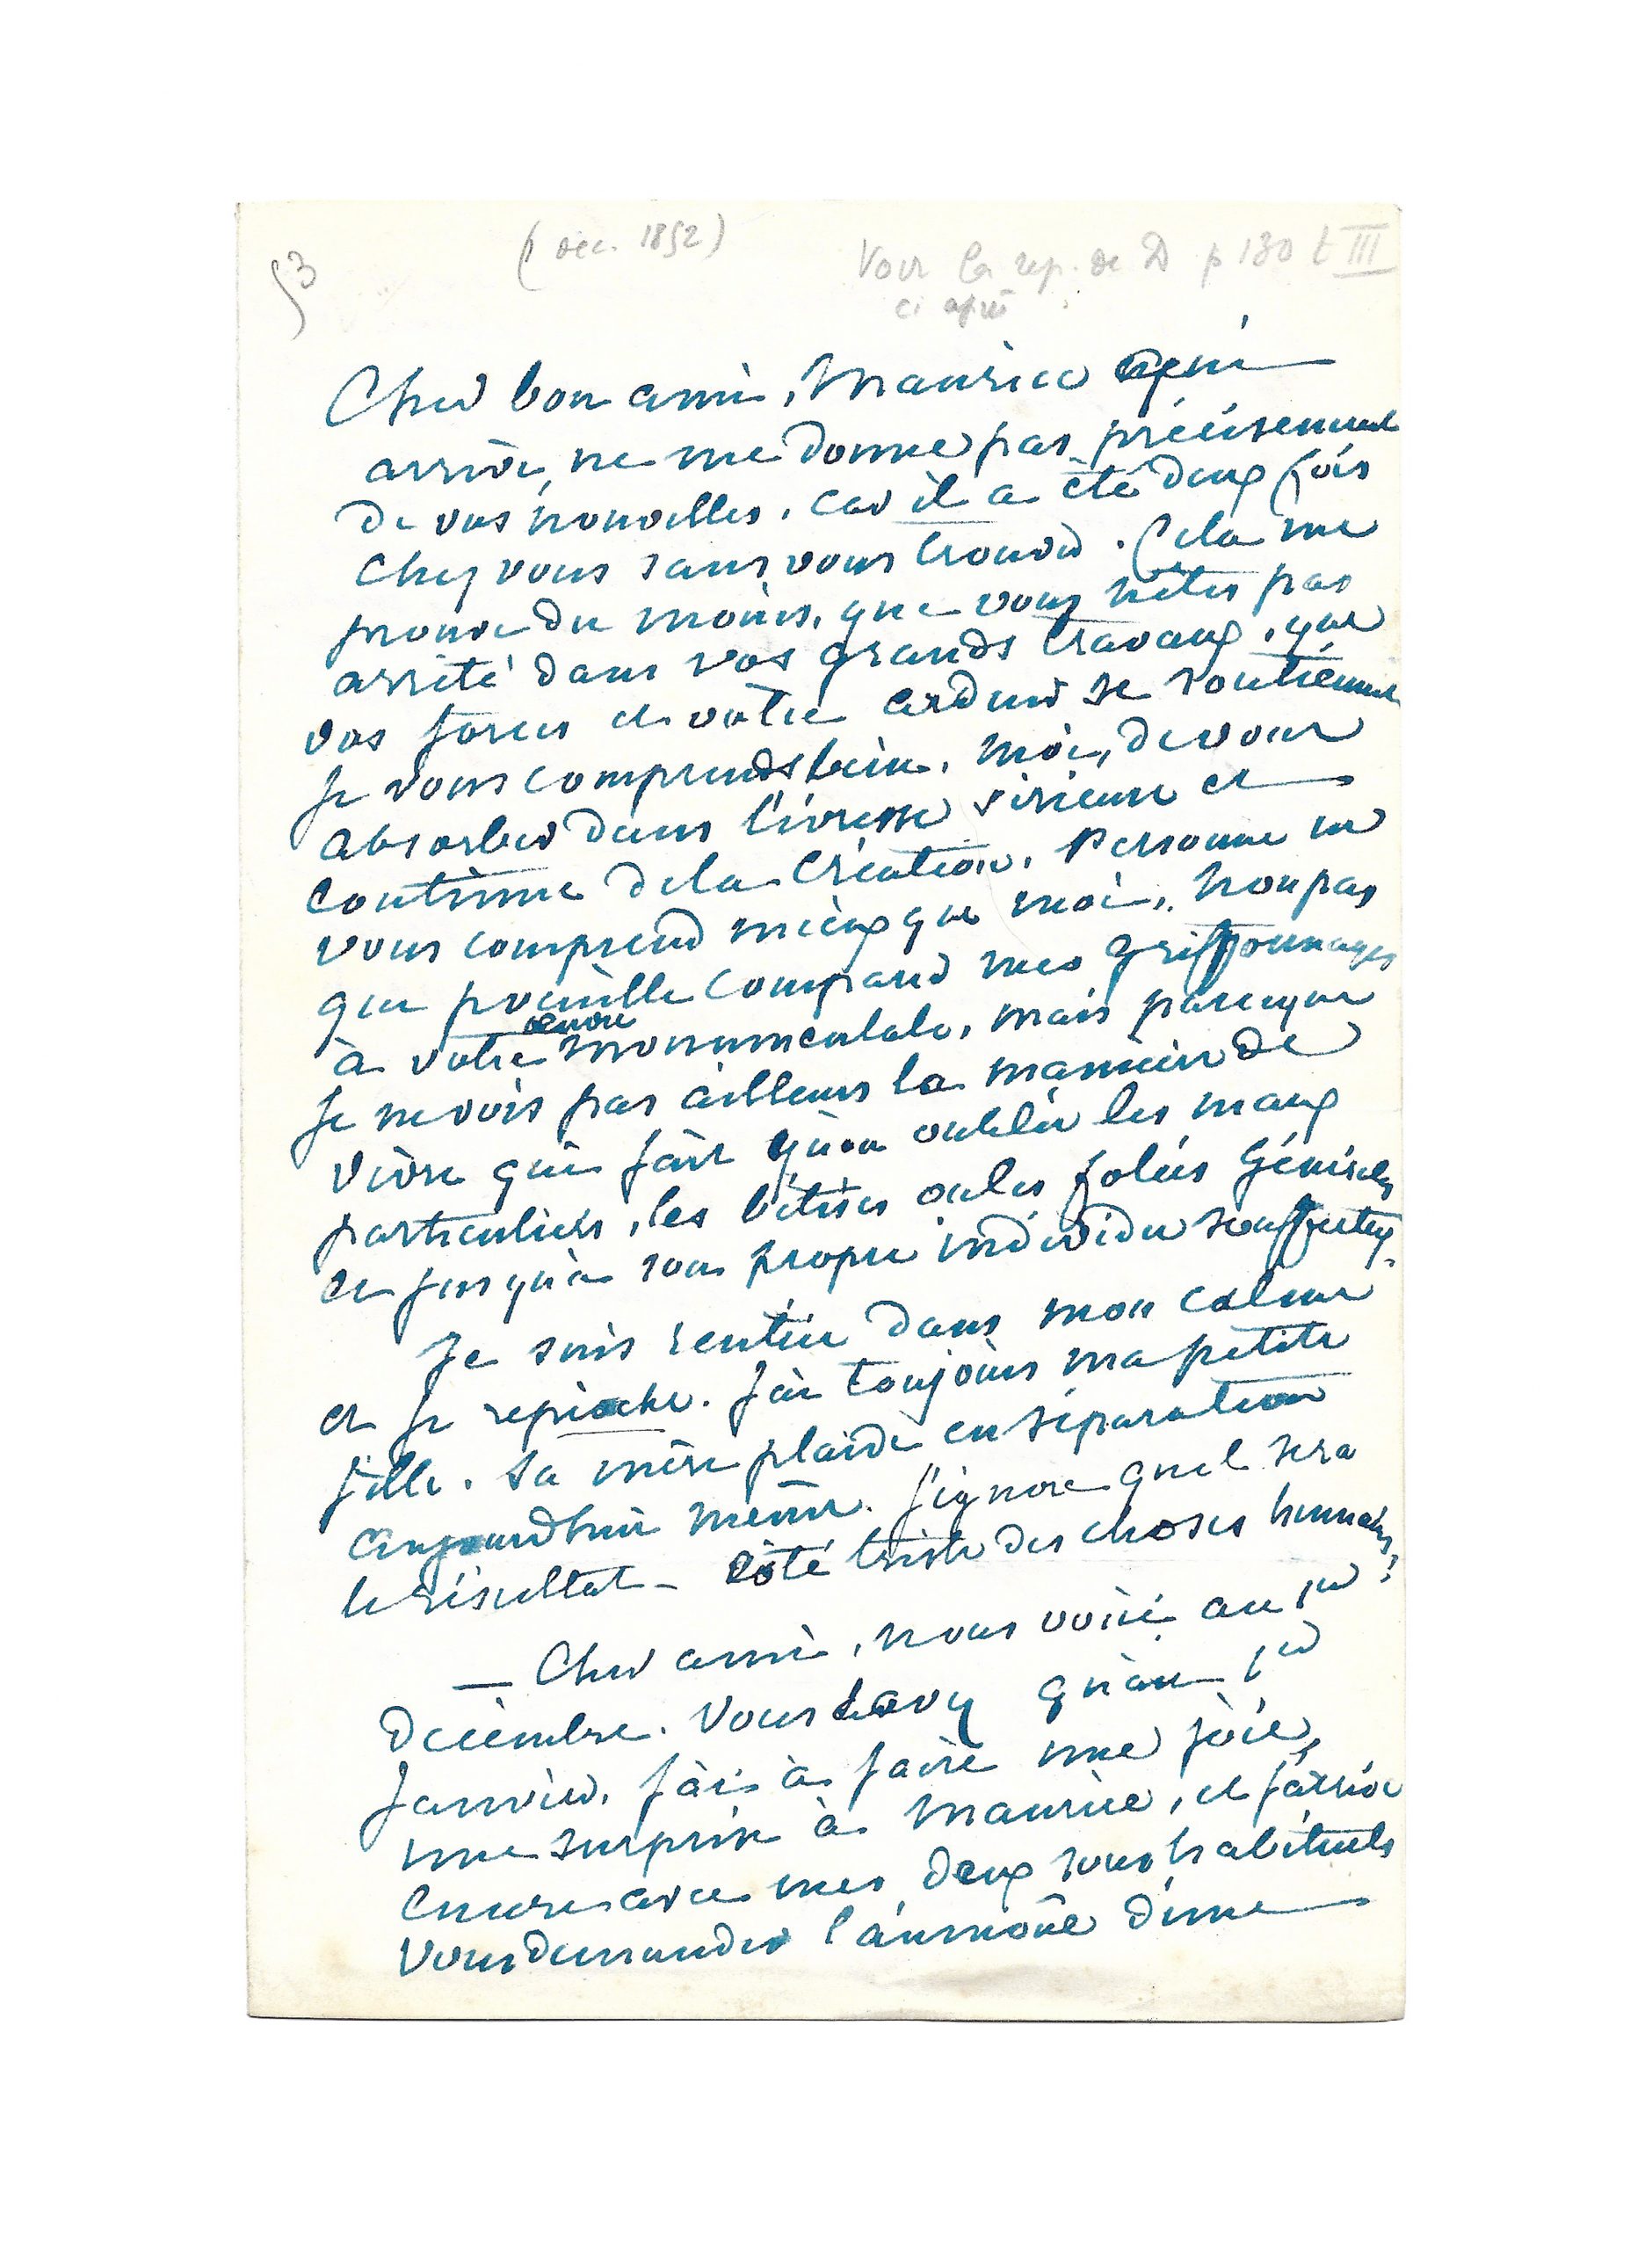 53
(dec. 1852)
Voir la rep. de D p 130 t III
ci après
Cher bon ami, Maurice qui
arrive, ne me donne pas précisément
de vos nouvelles, car il a été deux fois
chez vous sans vous trouver. Cela me
prouve du moins, que vous n'êtes pas
arrêté dans vos grands travaux, que
vos forces et votre ardeur se soutiennent
Je vous comprends bien, moi, de vous
absorber dans l'ivresse sérieuse et
continue de la création. Personne ne
vous comprend mieux que moi, non pas
que je veuille comparer mes griffonnages
à votre œuvre monumentale, mais parce que
je ne vois pas ailleurs la manière de
vivre qui fait qu'on oublie les maux
particuliers, les bêtises ou les folies générales
et jusqu'à son propre individu souffreteux.
Je suis rentrée dans mon calme
et je repioche. J'ai toujours ma petite
fille. Sa mère plaide en séparation
aujourd'hui même. J'ignore quel sera
le résultat – Côté triste des choses humaines!
— Cher ami, nous voici au 1er
Décembre. Vous savez qu'au 1er
Janvier, j'ai à faire une joie,
une surprise à Maurice, et j'arrive
encore avec mes deux sous habituels
vous demander l'aumône d'une